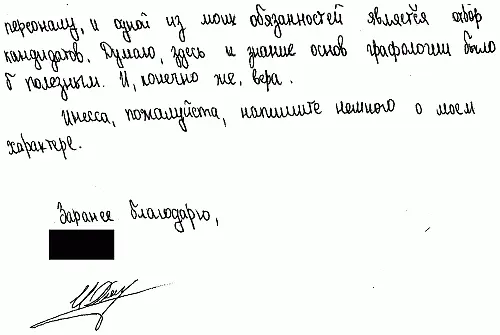 персоналу, и одной из моих обязанностей является отбор
кандидатов. Думаю, здесь и знание основ графологии было
б полезным. И, конечно же, вера.
Инесса, пожалуйста, напишите немного о моем
характере.
Заранее благодарю,